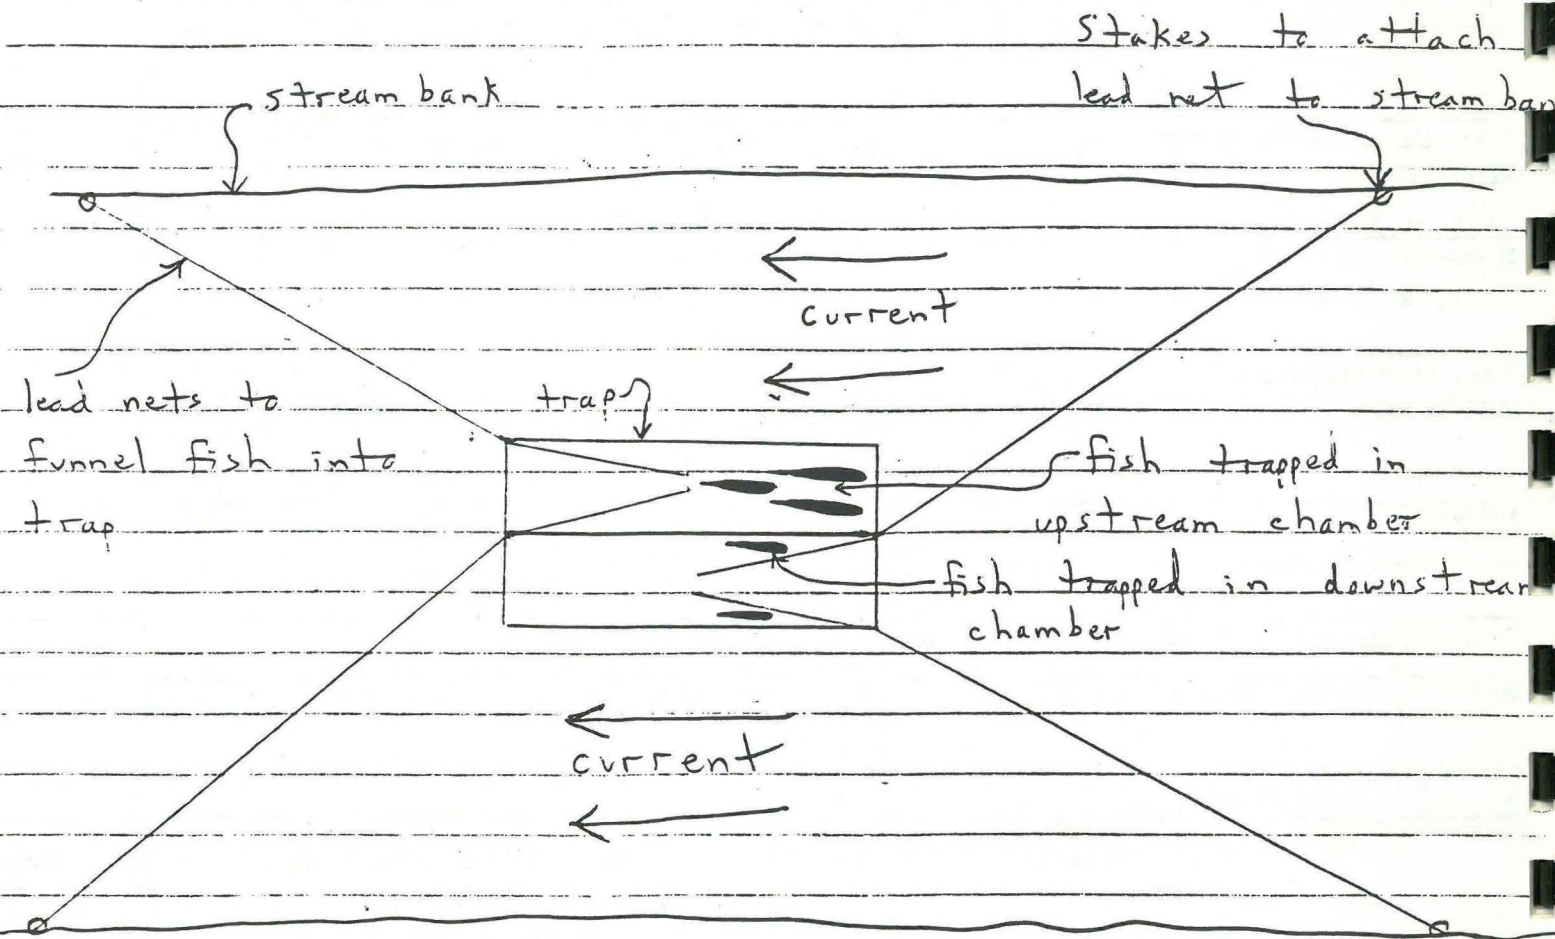 Stakes to attach
lead net to stream ban
stream bank
current
lead nets to
funnel fish into
trap
trap
fish trapped in
upstream chamber
fish trapped in downstream
chamber
current